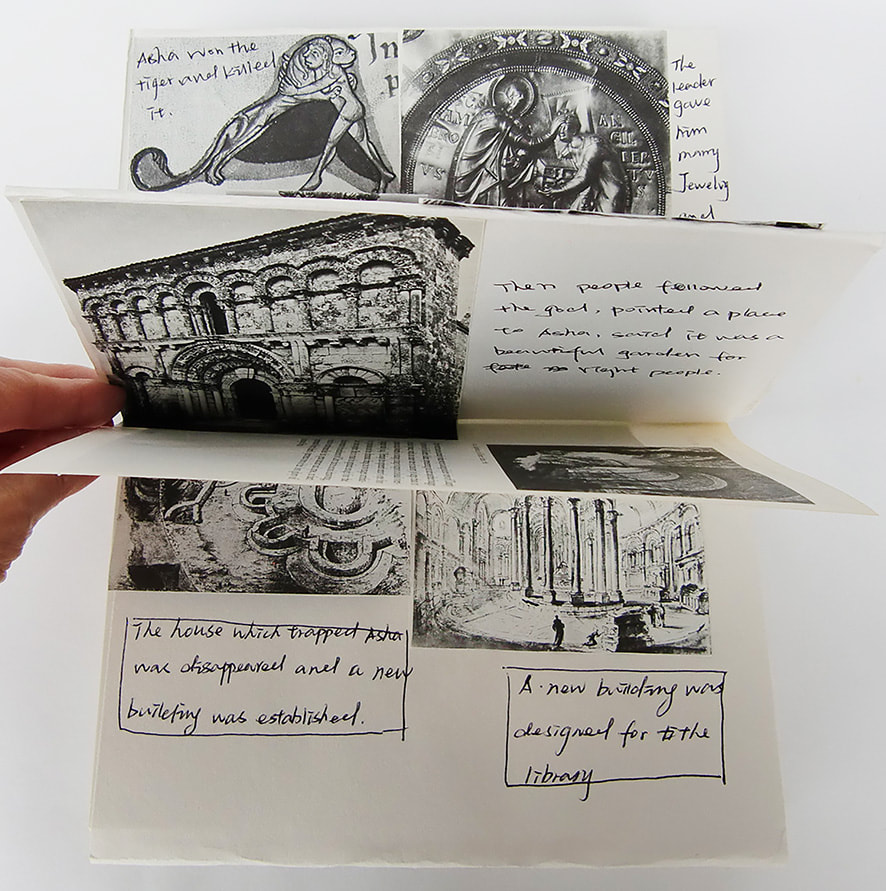 Asha won the
tiger and killed
it.
In
p
AN
GIL
BER
TV
S
The
leader
gave
him
many
Jewelry
and
Then people followed
the god, pointed a place
to Asha, said it was a
beautiful garden for
right people.
The house which trapped Asha
was disappeared and a new
building was established.
A new building was
designed for the
library